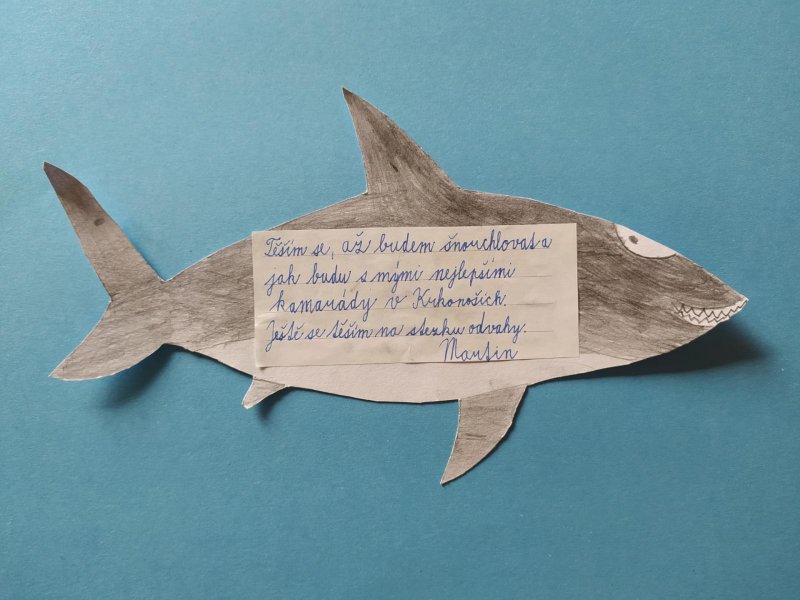 Těším se, až budem šnorchlovat a
jak budu s mými nejlepšími
kamarády v Krkonoších.
Ještě se těším na stezku odvahy.
Martin